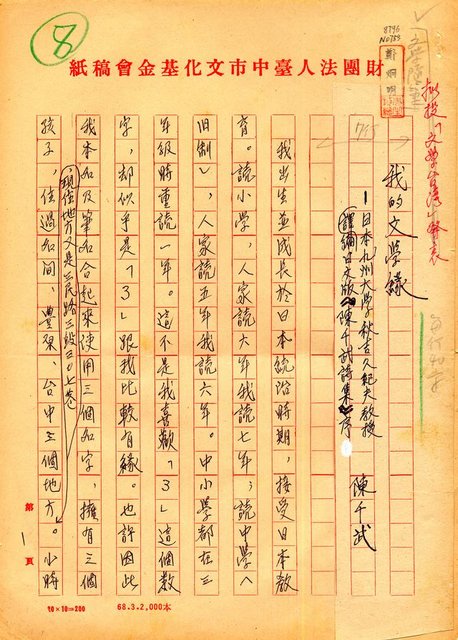 8
8796
N0755
鄭烱明
擬投「文學台灣」發表
財團法人臺中市文化基金會稿紙
我的文學緣
—日本九州大學秋吉久紀夫教授
譯編日文版《陳千武詩集》序
陳千武
我出生並成長於日本統治時期,接受日本教
育。讀小學,人家讀六年我讀七年;讀中學(
旧制),人家讀五年我讀六年。中小學都在三
年級時重讀一年。這不是我喜歡「3」這個數
字,却似乎是「3」跟我比較有緣。也許因此
我本名及筆名合起來使用三個名字,擁有三個
孩子,住過名間、豐原、台中三個地方。小時
現住地方又是三民路三段三〇七巷
第1頁
10×20=200
68.3.2,000本